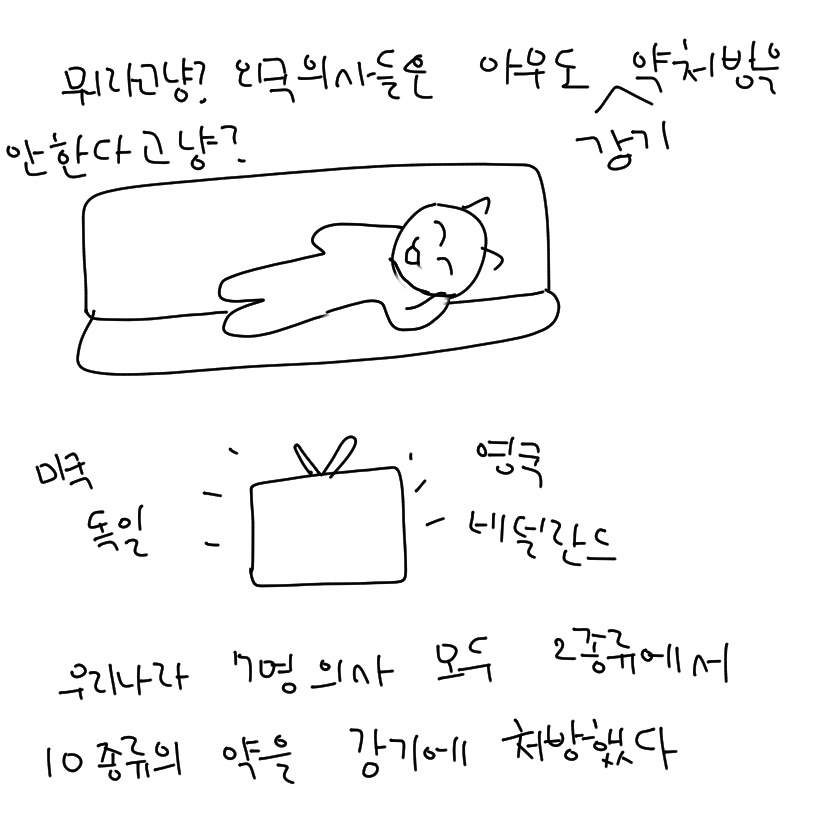 뭐라고냥? 외국의사들은 아무도 감기 약처방을
안한다고냥?
미국 영국
독일 네덜란드
우리나라 7명 의사 모두 2종류에서
10종류의 약을 감기에 처방했다